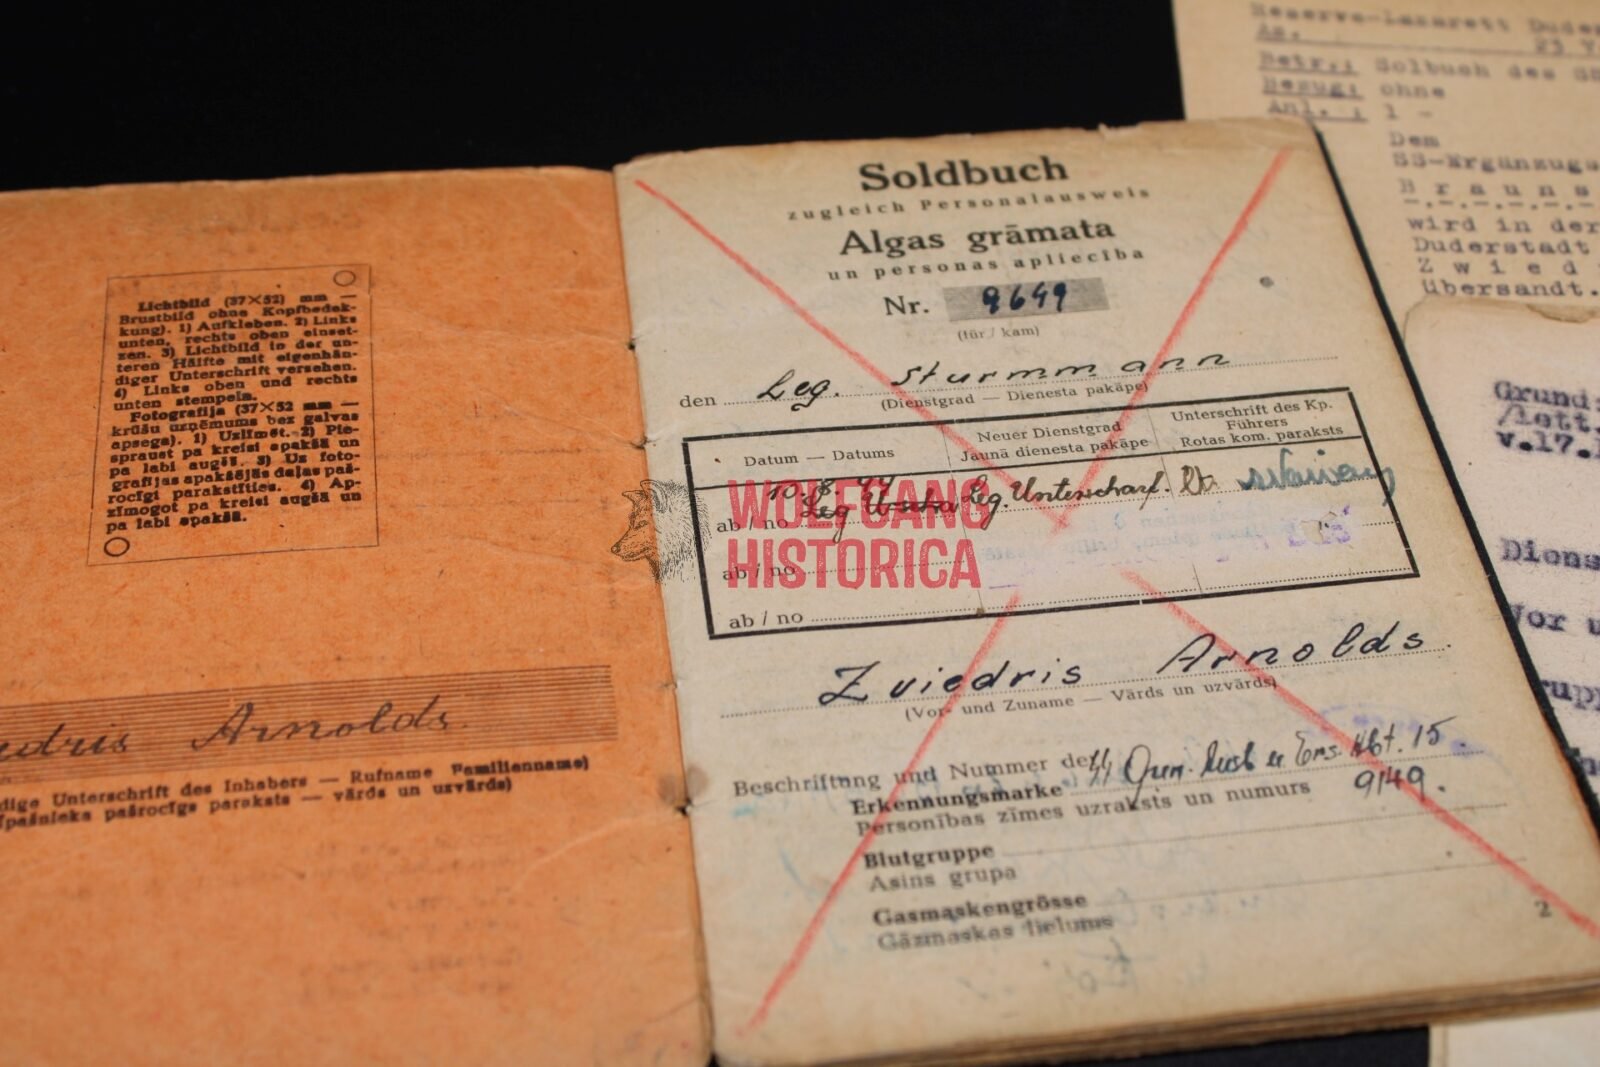 Lichtbild (37×52) mm —
Brustbild ohne Kopfbedek-
kung). 1) Aufkleben. 2) Links
unten, rechts oben einset-
zen. 3) Lichtbild in der un-
teren Hälfte mit eigenhän-
diger Unterschrift versehen.
4) Links oben und rechts
unten stempeln.
Fotografija (37×52 mm —
krūšu uzņēmums bez galvas
apsega). 1) Uzlīmēt. 2) Pie-
spraust pa kreisi apakšā un
pa labi augšā. 3) Uz foto-
grafijas apakšējās daļas paš-
rocīgi parakstīties. 4) Ap-
zīmogot pa kreisi augšā un
pa labi apakšā.
edris Arnolds.
dige Unterschrift des Inhabers — Rufname Familienname)
īpašnieka pašrocīgs paraksts — vārds un uzvārds)
Soldbuch
zugleich Personalausweis
Algas grāmata
un personas apliecība
Nr. 9649
(für / kam)
den Leg. Sturmmann
(Dienstgrad — Dienesta pakāpe)
Datum — Datums
Neuer Dienstgrad
Jaunā dienesta pakāpe
Unterschrift des Kp.
Führers
Rotas kom. paraksts
ab / no 10.8.44 Leg. Unterscharf. Lt.
ab / no
ab / no
WOLFGANG
HISTORICA
Zviedris Arnolds.
(Vor- und Zuname — Vārds un uzvārds)
Beschriftung und Nummer der Ers. Abt. 15
Erkennungsmarke 9149.
Personības zīmes uzraksts un numurs
Blutgruppe
Asins grupa
Gasmaskengrösse
Gāzmaskas lielums
2
Reserve-Lazarett Duder
Az. 23 V
Betr.: Solbuch des SS
Bezug: ohne
Anl. : 1 -
Dem
SS-Ergänzugs
B r a u n s
wird in der
Duderstadt
Z w i e d
übersandt.
Grund:
/lett.
v.17.
Diens
Vor u
rupp